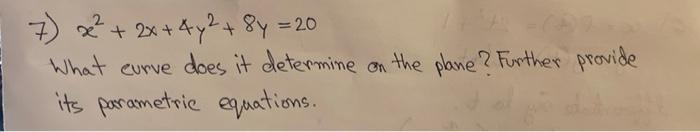 7) x² + 2x + 4y² + 8y = 20
What curve does it determine on the plane? Further provide
its parametric equations.